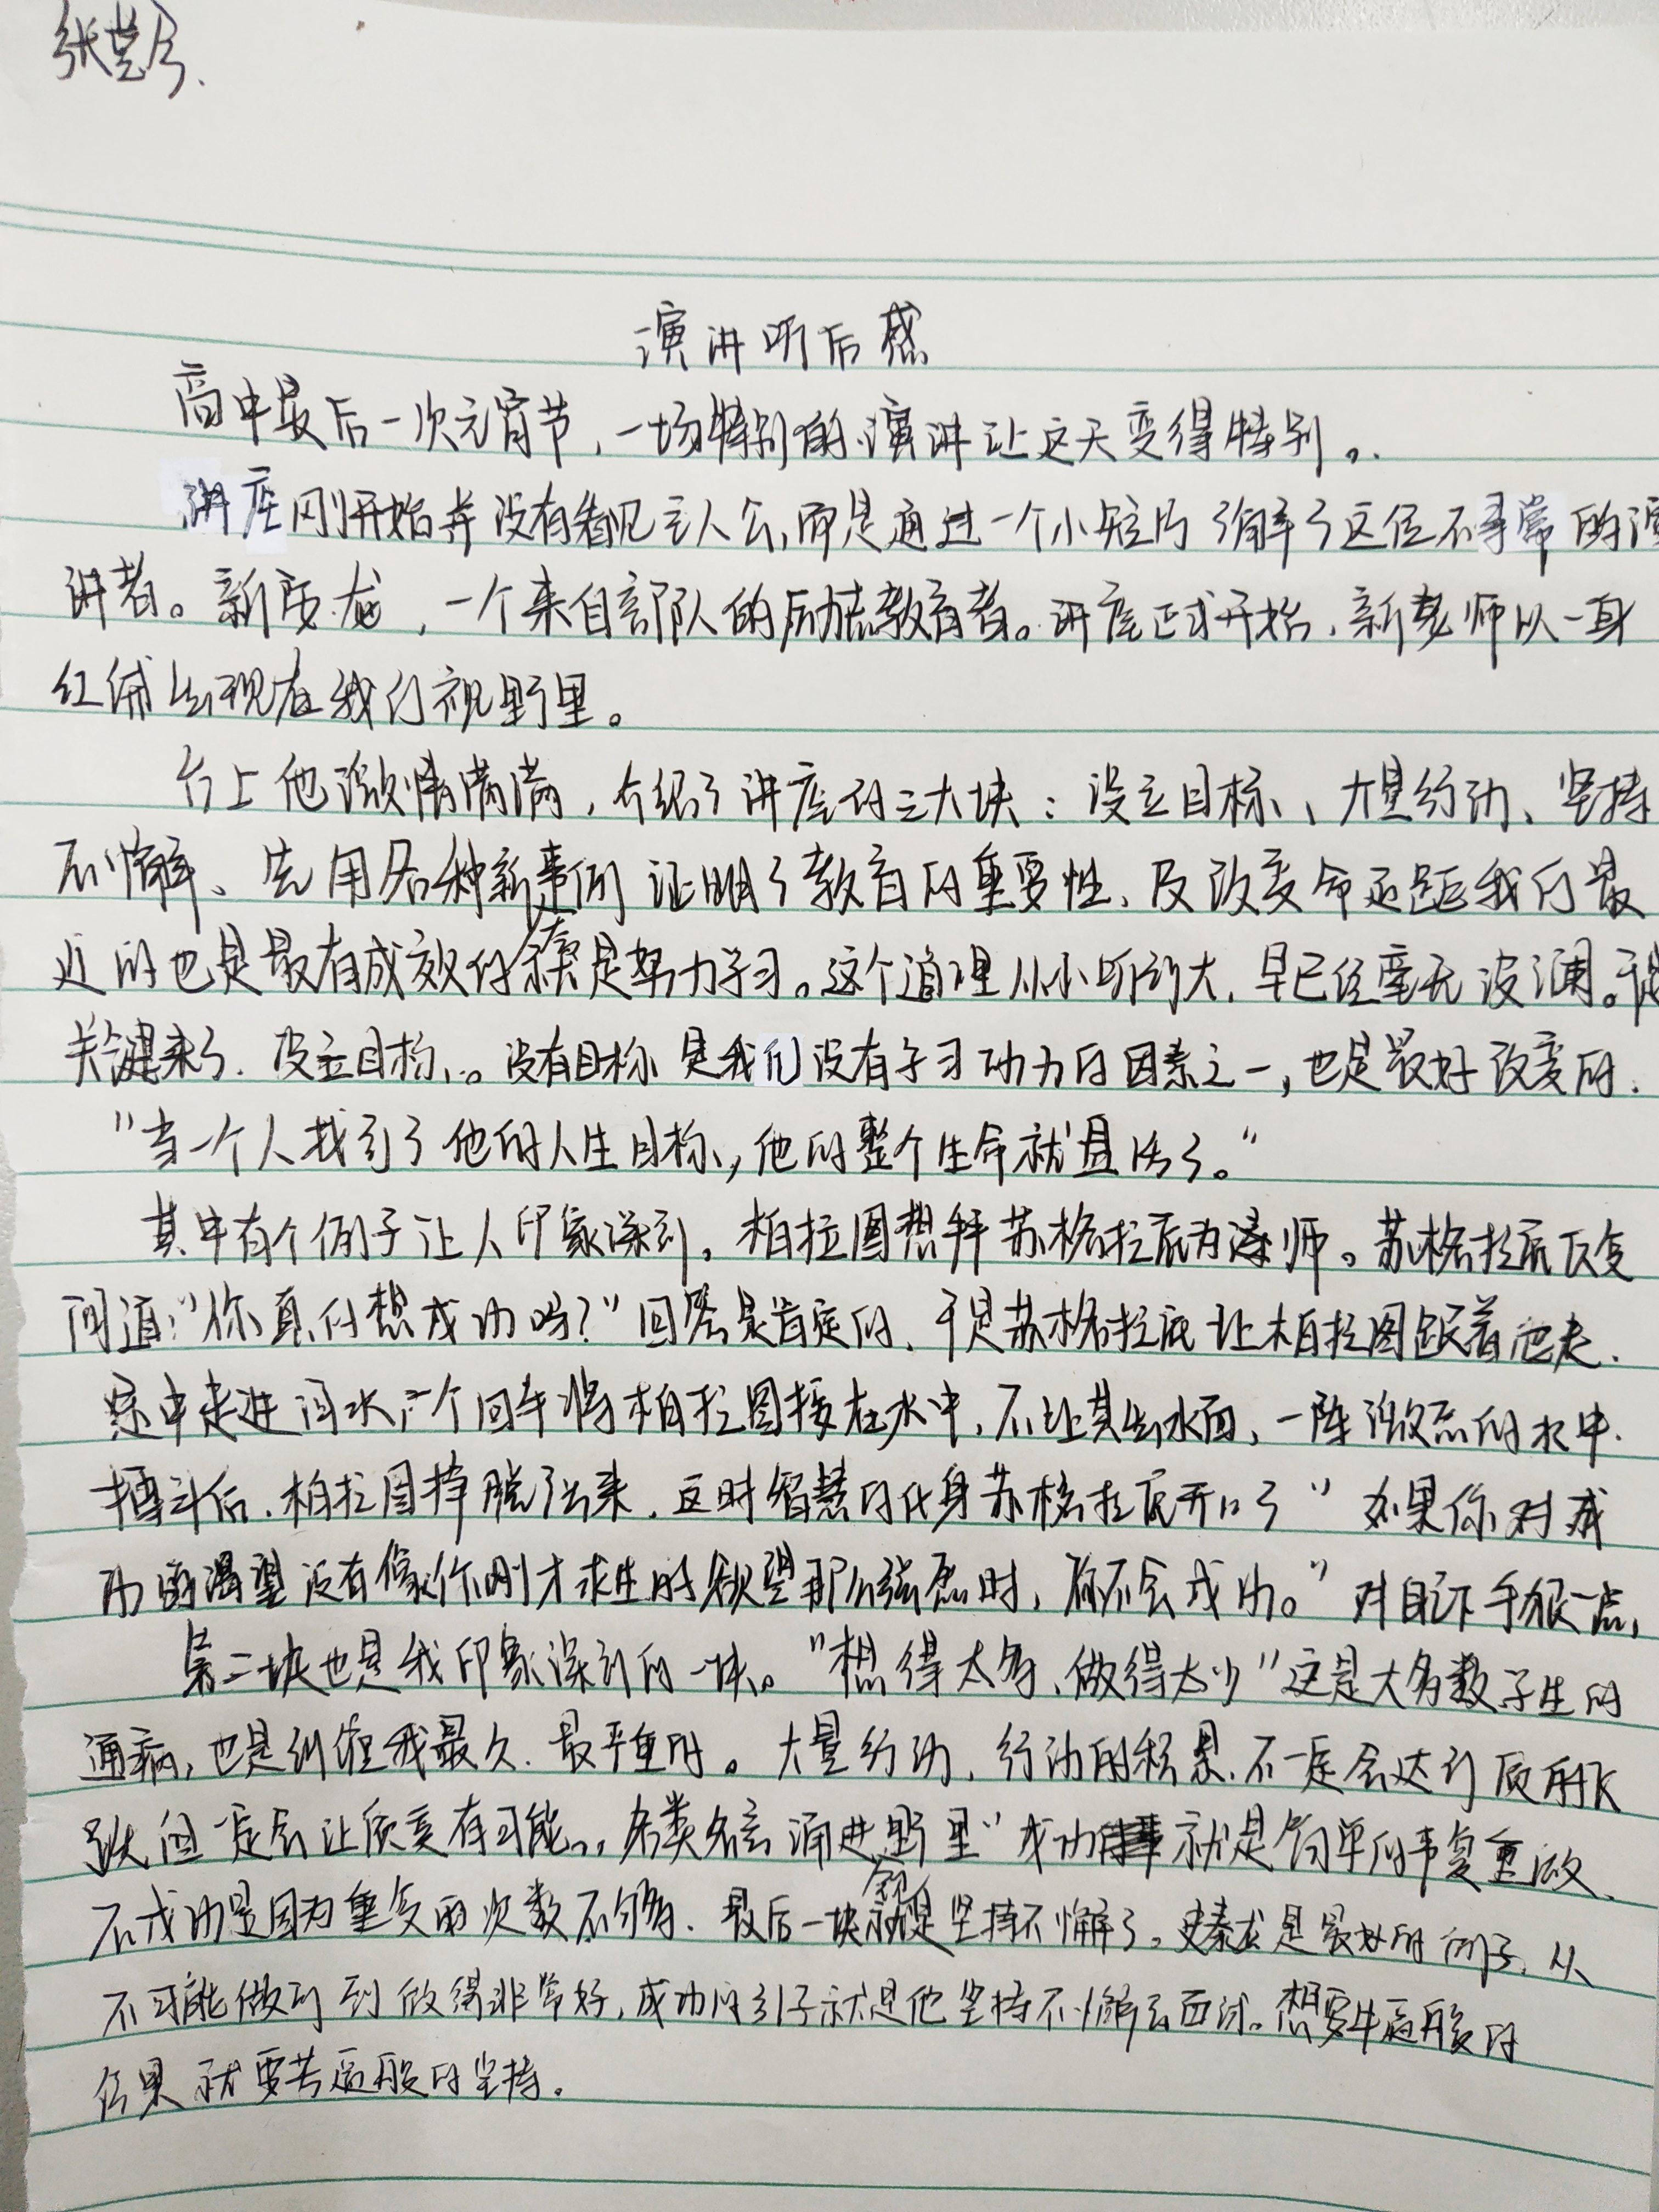 张
演讲听后感
高中最后一次元宵节，一场特别的演讲让这天变得特别。
讲座刚开始并没有看见主人公，而是通过一个小短片了解了这位不寻常的演
讲者。新庆龙，一个来自部队的励志教育者。讲座正式开始，新老师以一身
红 出现在我们视野里。
台上他激情满满，介绍了讲座的三大块：设立目标、大量行动、坚持
不懈、先用各种新事例证明了教育的重要性，及改变命运距我们最
近的也是最有成效的 是努力学习。这个道理从小听到大，早已经毫无波澜。
关键来了，设立目标。没有目标是我们没有学习动力的因素之一，也是最好改变的.
"当一个人找到了他的人生目标，他的整个生命就 活了。"
其中有个例子让人印象深刻，柏拉图想拜苏格拉底为 师。苏格拉底反复
问道："你真的想成功吗？"回答是肯定的，于是苏格拉底让柏拉图跟着他走.
途中走进河水，一个回手将柏拉图按在水中，不让其出水面，一阵激烈的水中
搏斗后，柏拉图挣脱了出来，这时智慧的化身苏格拉底开口了"如果你对成
功的渴望没有像你刚才求生的欲望那么强烈时， 不会成功。"对自己下手狠一点，
第二块也是我印象深刻的一块。"想得太多，做得太少"这是大多数学生的
通病，也是纠缠我最久，最严重的。大量行动，行动的积累，不一定会达到质的飞
跃但一定会让质变有可能。各类名言涌进 野里"成功 就是简单的事复重做、
不成功是因为重复的次数不够。最后一块 是坚持不懈了。史泰龙是最好的例子，从
不可能做到到做得非常好，成功的引子就是他坚持不懈去面试。想要牛逼般的
结果就要苦逼般的坚持。